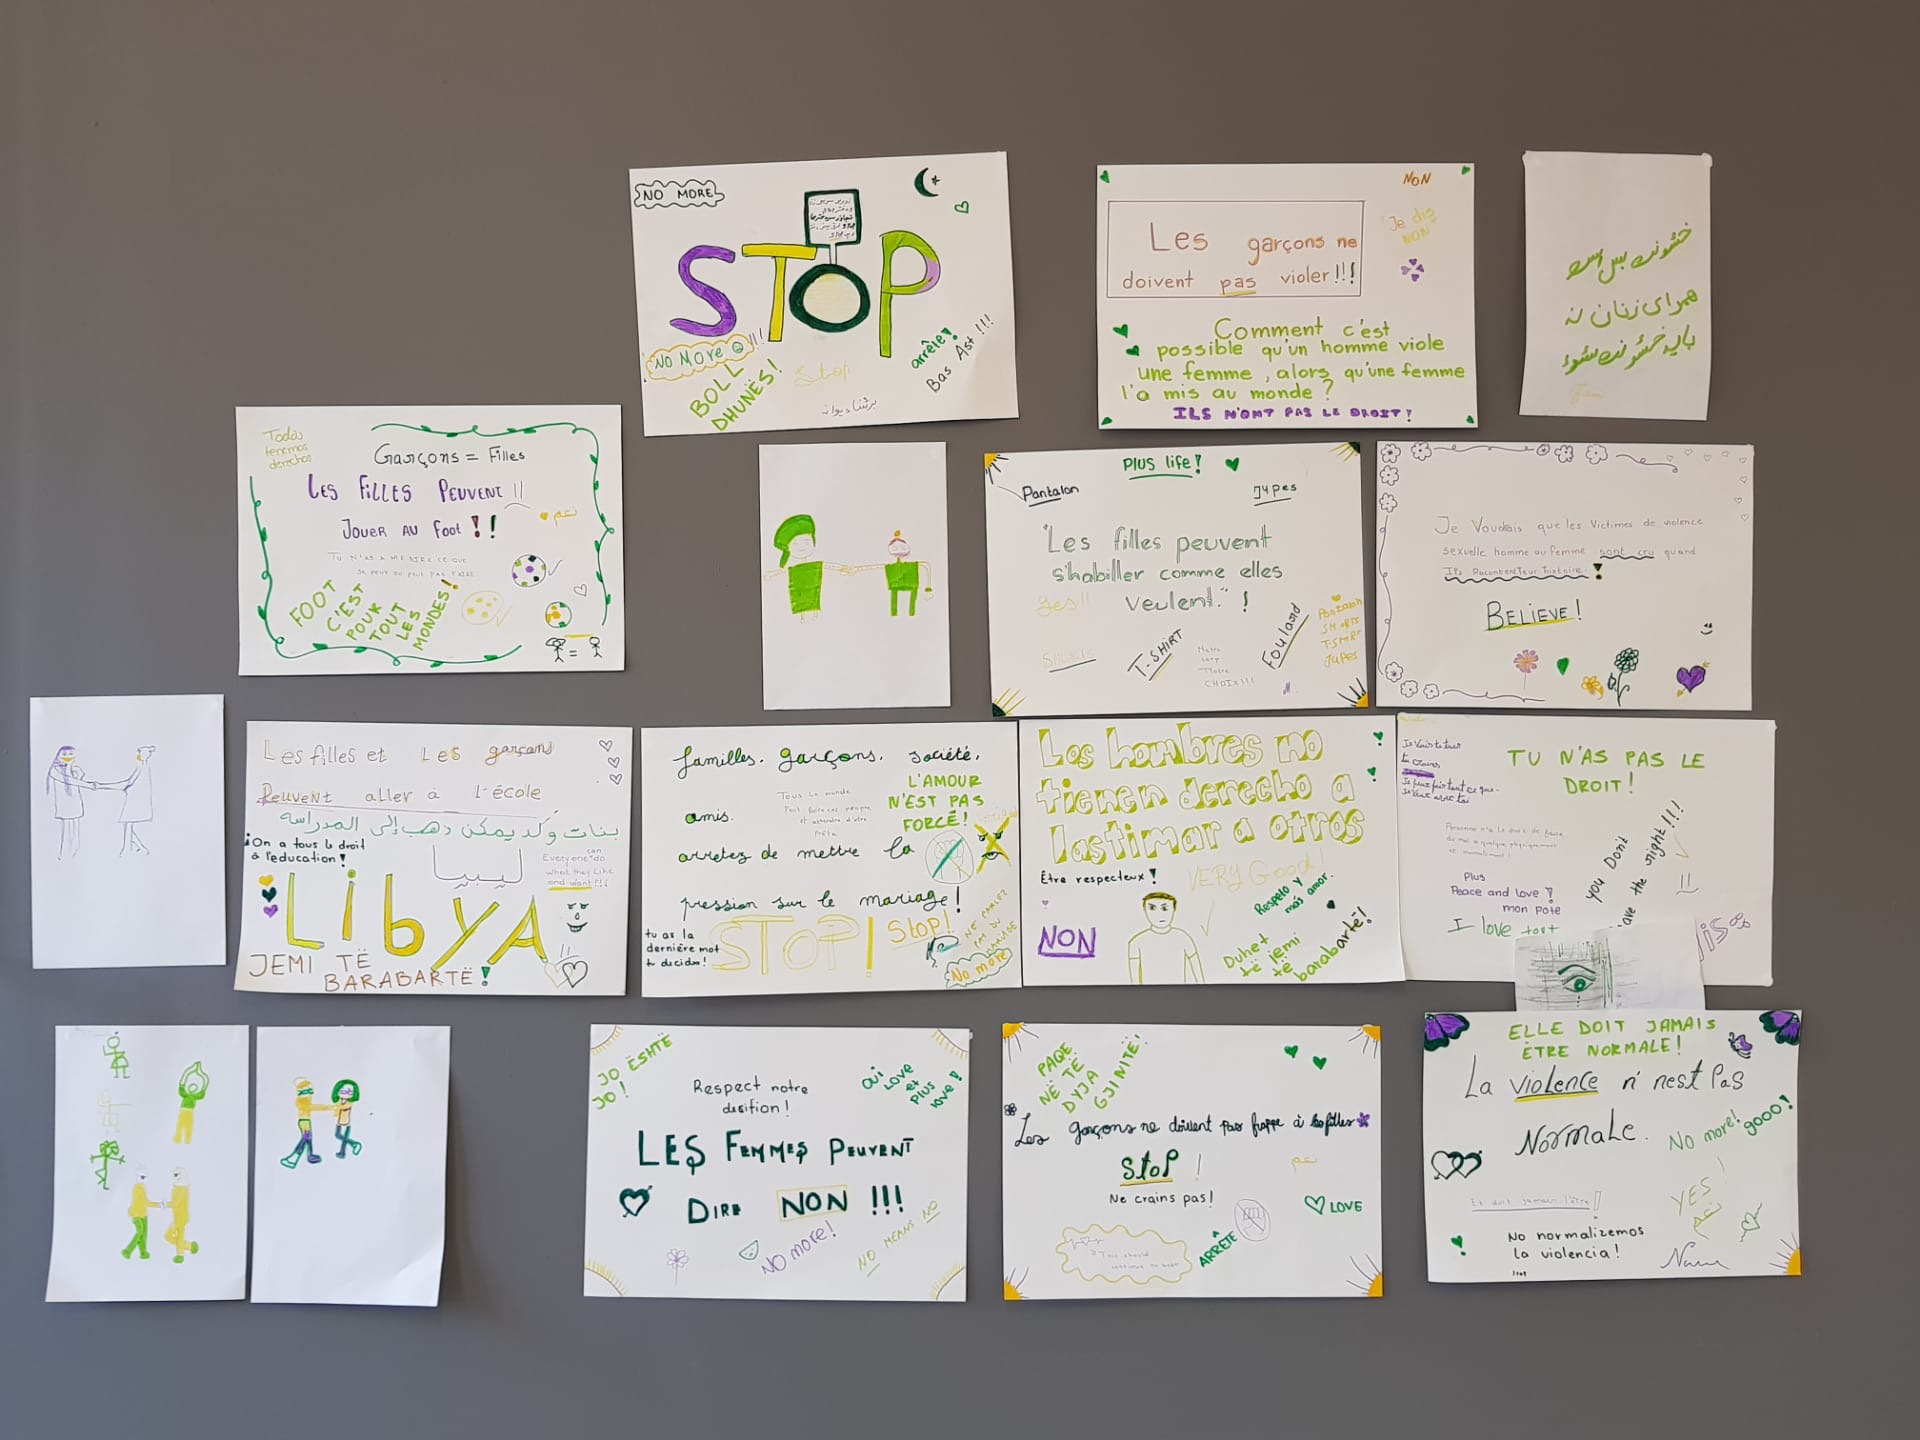 NO MORE
STOP
NO MORE
!!!
BOLL
DHUNËS!
Stop
arrête!
Bas Ast !!!
برشنا دیوانه
NON
Je dis
NON
Les garçons ne
doivent pas violer!!!
Comment c'est
possible qu'un homme viole
une femme, alors qu'une femme
l'a mis au monde ?
ILS N'ONT PAS LE DROIT!
خشونت بس است
همرای زنان نه
باید خشونت شود
Todos
tenemos
derechos
Garçons = Filles
LES FILLES PEUVENT !!
JOUER AU Foot !!
نعم
TU N'AS A ME DIRE CE QUE
JE PEUX OU PEUT PAS FAIRE
FOOT
C'EST
POUR
TOUT
LES
MONDES!
=
PLUS life!
Pantalon
Jupes
"Les filles peuvent
s'habiller comme elles
veulent." !
Yes!!
T-SHIRT
Foulard
Notre
corp
Notre
CHOIX!!!
Pantalon
SHORTS
T-SHIRT
Jupes
Je Voudrais que les Victimes de violence
sexuelle homme ou femme sont cru quand
Ils Racontent leur histoire.!
BELIEVE!
Les filles et Les garçons
Peuvent aller à l'école
بنات وَلد يمكن دهب إلى المدراسة
On a tous le droit
à l'education!
ليبيا
Everyone can do
what they like
and want!!!
LibYA
JEMI TË
BARABARTË!
familles. garçons. société,
amis.
Tous le monde
Peut faire ces propre
et attendre d'être
Prête
L'AMOUR
N'EST PAS
FORCÉ!
arretez de mettre la
pression sur le mariage!
tu as la
dernière mot
tu decides!
STOP!
Stop!
NE PARLEZ
PAS DU
MARIAGE
No more
Los hombres no
tienen derecho a
lastimar a otros
Être respecteux!
VERY Good!
Respeto y
más amor.
NON
Duhet
të jemi
të
barabartë!
Je peux fais tout ce que
Je veux avec toi
TU N'AS PAS LE
DROIT!
Personne n'a le droit de faire
du mal a quelqu physiquement
et mentalement!
YOU Don't
have the right!!!
Plus
Peace and love!
mon pote
I love tout
JO ËSHTË
JO!
Respect notre
desition!
OUI LOVE
et
PLUS
love!
LES FEMMES PEUVENT
DIRE NON !!!
No more!
NO MEANS NO
PAQE
NË TË
DYJA
GJINITË!
Les garçons ne doivent pas frappe à les filles
STOP !
نعم
Ne crains pas!
LOVE
ARRÊTE
ELLE DOIT JAMAIS
ÊTRE NORMALE!
La violence n'nest Pas
NORMALE.
No more! gooo!
Et doit jamais l'être!
YES!
نعم
No normalizemos
la violencia!